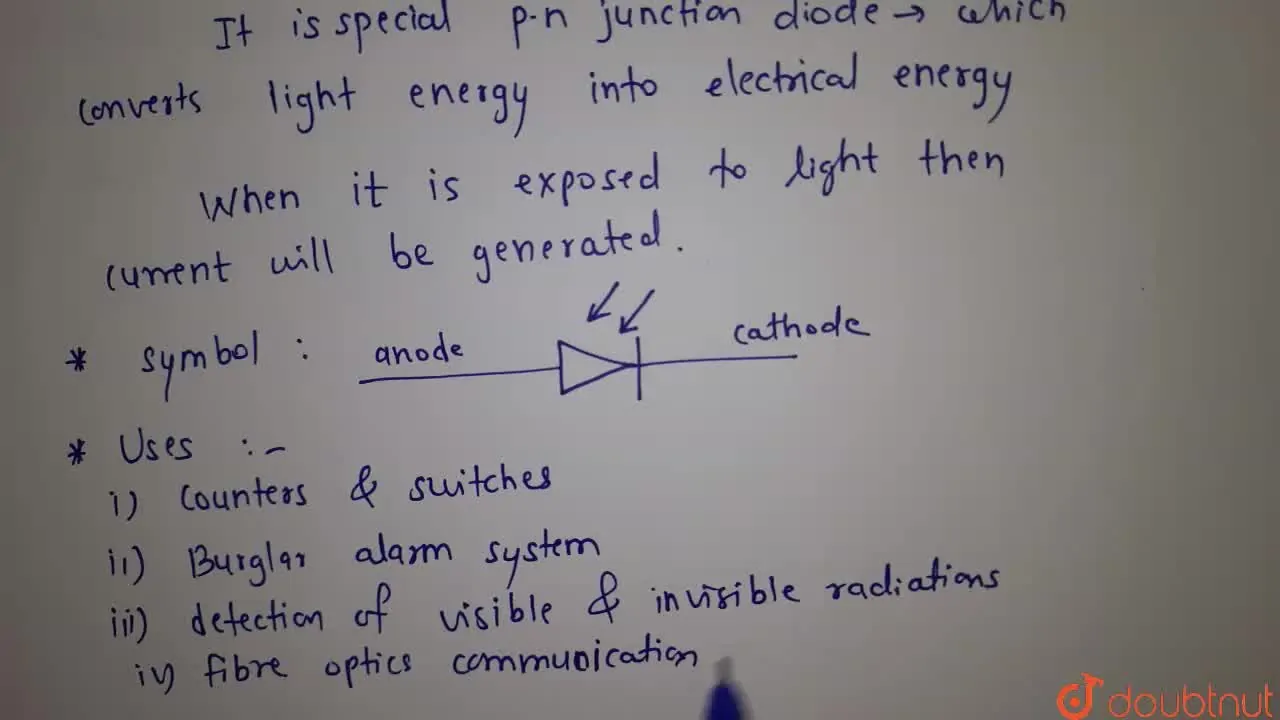 It is special p-n junction diode → which
converts light energy into electrical energy
When it is exposed to light then
current will be generated.
* symbol : anode cathode
* Uses :-
i) Counters & switches
ii) Burglar alarm system
iii) detection of visible & invisible radiations
iv) fibre optics communication
doubtnut